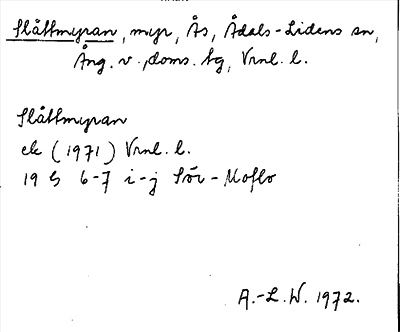 Slåttmyran, myr, Ås, Ådals-Lidens sn,
Ång. v. doms. tg, Vrnl. l.
Slåttmyran
ek (1971) Vrnl. l.
19 G 6-7 i-j Sör-Moflo
A.-L.W. 1972.